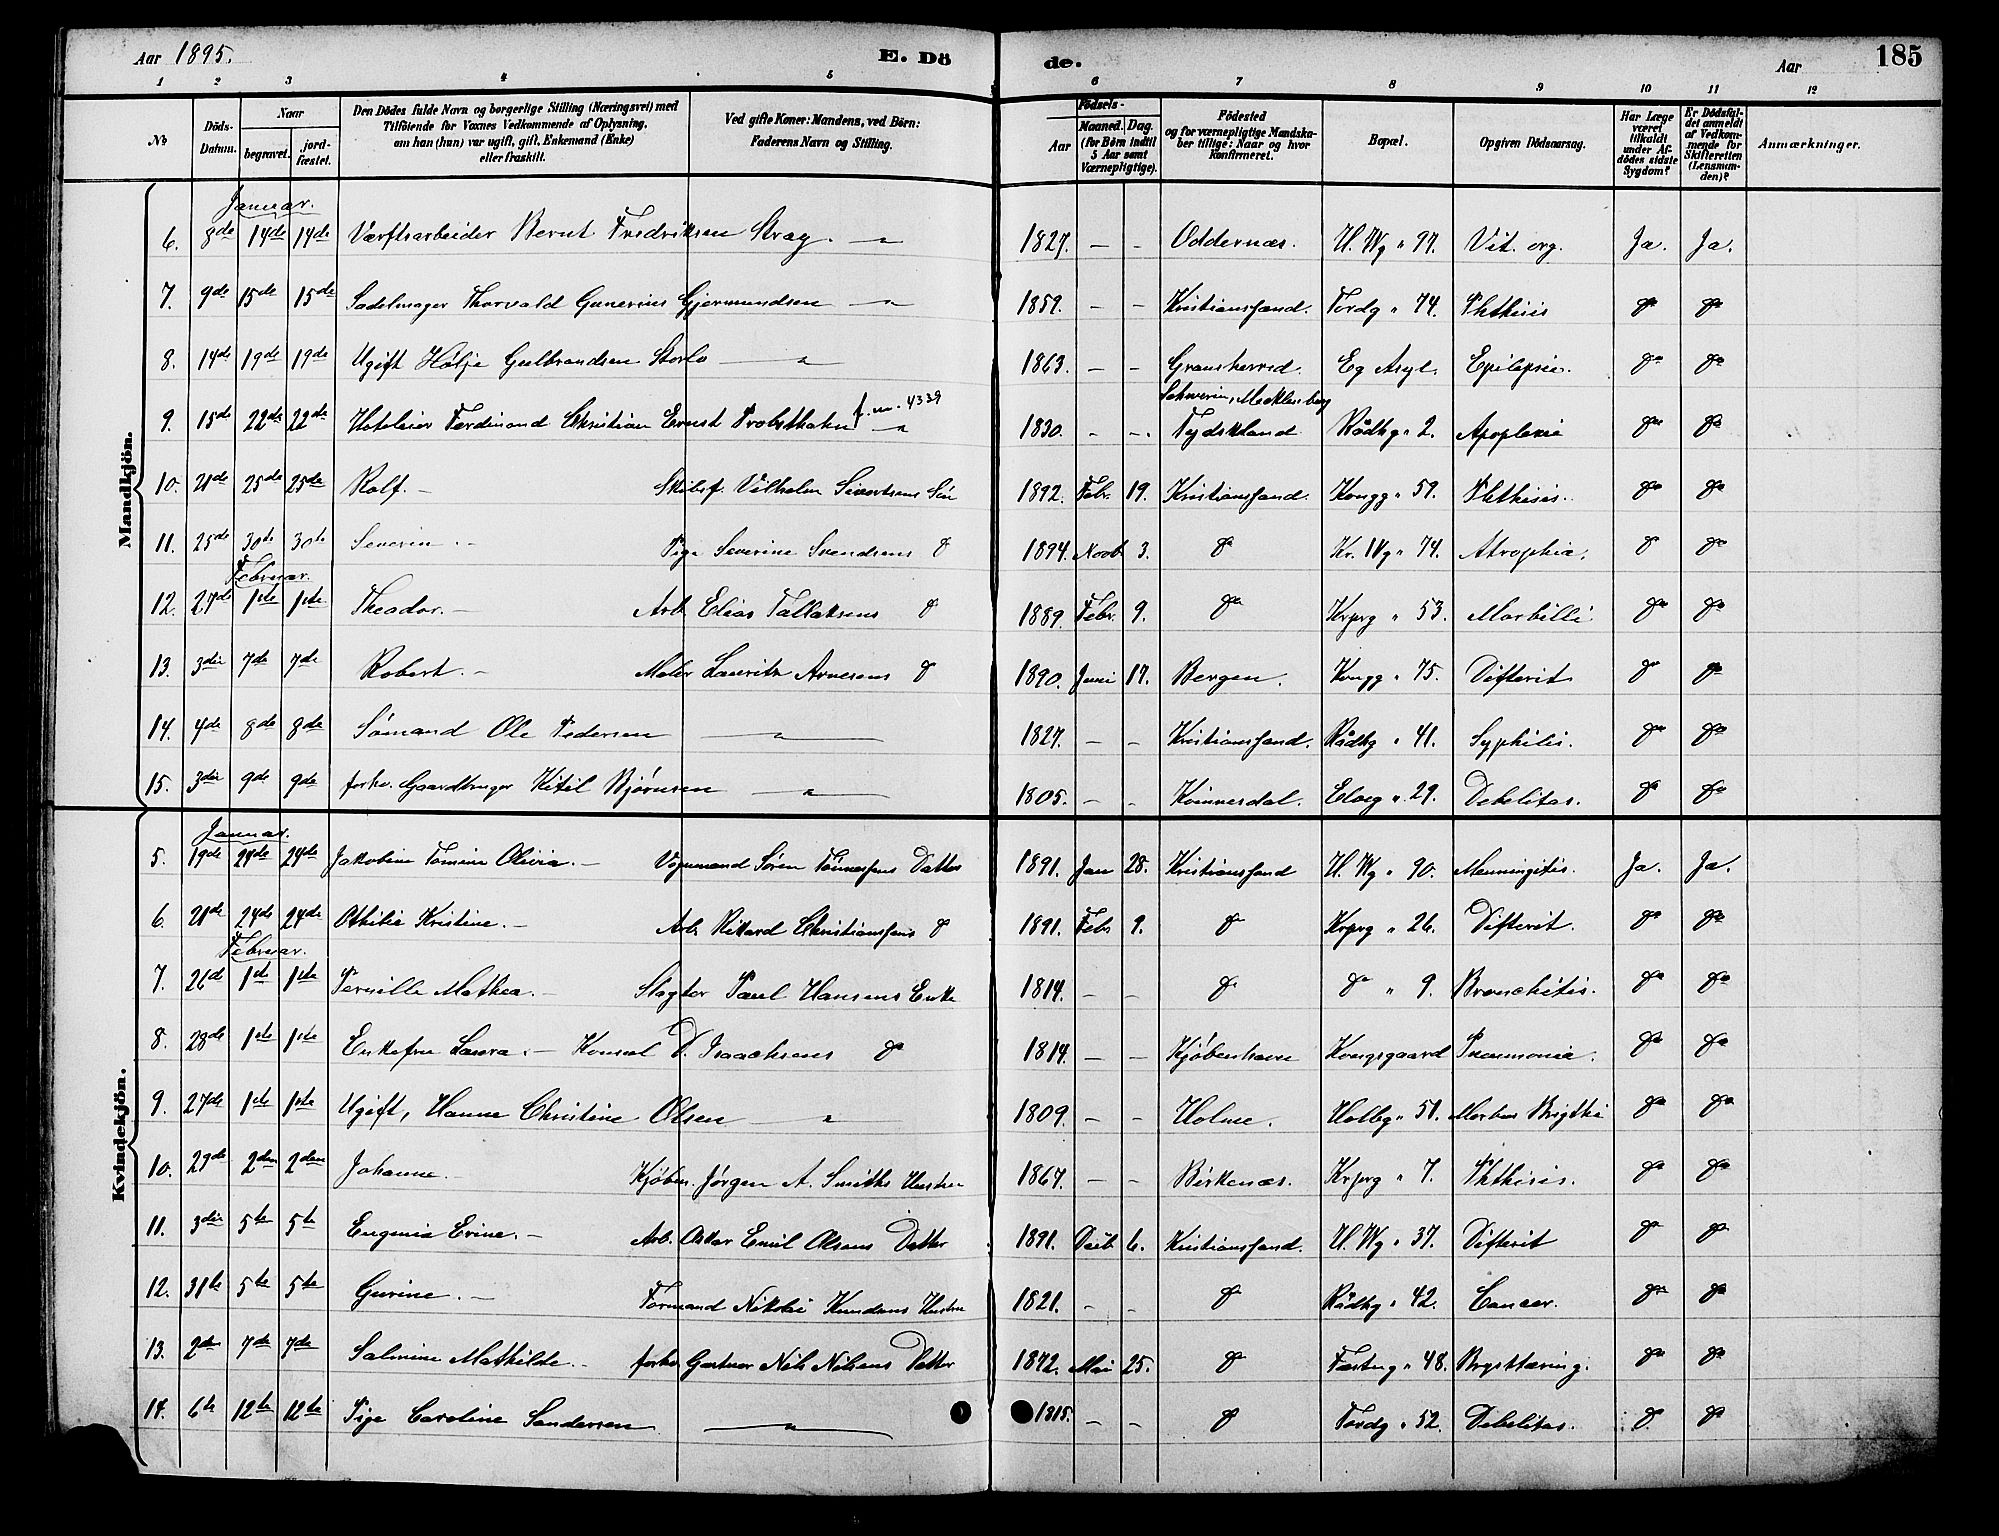 Aar 1895. E. Dö
de. Aar 185
1 2 3 4 5 6 7 8 9 10 11 12
No Döds-Datum. Naar begravet. jordfæstet. Den Dödes fulde Navn og borgerlige Stilling (Næringsvei) med Tilföiende for Voxnes Vedkommende af Oplysning, om han (hun) var ugift, gift, Enkemand (Enke) eller fraskilt. Ved gifte Koner: Mandens, ved Börn: Faderens Navn og Stilling. Födsels- Aar Maaned. Dag. (for Börn indtil 5 Aar samt Værnepligtige). Födested og for værnepligtige Mandskaber tillige: Naar og hvor konfirmeret. Bopæl. Opgiven Dödsaarsag. Har Læge været tilkaldt under Afdödes sidste Sygdom? Er Dödsfaldet anmeldt af Vedkommende for Skifteretten (Lensmanden)? Anmærkninger.
Mandkjön.
Januar.
6. 8de 14de 14de Værftsarbeider Bernt Fredriksen Stray. — " — 1827. - - Oddernæs. H. Wg " 97. Vit. org. Ja. Ja.
7. 9de 15de 15de Sadelmager Thorvald Gunerius Gjermundsen — " — 1859. - - Kristianssand. Tordg " 74. Phthisis do do
8. 14de 19de 19de Ugift Hølje Gulbrandsen Storlo — " — 1863. - - Gransherred. Eg Asyl. Epilepsie. do do
9. 15de 22de 22de Hoteleier Ferdinand Christian Ernst Probsthahn f. nr. 4339 — " — 1830. - - Schwerin, Mecklenburg Tydskland Rådhg " 2. Apoplexie do do
10. 21de 25de 25de Rolf. - Skibsf. Vilhelm Sivertsens Søn 1892. Febr. 19. Kristianssand. Kongg " 59. Phthisis. do do
11. 25de 30te 30te Severin. - Pige Severine Svendsens do 1894. Novb 3. do Kr. IVg " 74. Atrophia. do do
Februar.
12. 27de 1ste 1ste Theodor. - Arb. Elias Tallaksens do 1889. Febr. 9. do Krprg " 53. Morbilli do do
13. 3die 7de 7de Robert. - Maler Lauritz Arnesens do 1890. Juni 17. Bergen. Kongg " 75. Difterit do do
14. 4de 8de 8de Sømand Ole Pedersen — " — 1827. - - Kristianssand. Rådhg " 41. Syphilis. do do
15. 3die 9de 9de forhv. Gaardbruger Kitil Bjørnsen — " — 1805. - - Kvinnesdal. Elveg " 29. Debelitas. do do
Kvindekjön.
Januar.
5. 19de 24de 24de Jakobine Tomine Olivia. - Vognmand Søren Tønnessens Datter 1891. Jan 28. Kristianssand H. Wg " 90. Menningitis. Ja. Ja.
6. 21de 24de 24de Othilie Kristine. - Arb. Rikard Christianssens do 1891. Febr 9. do Krprg " 26. Difterit. do do
Februar.
7. 26d 1ste 1ste Pernille Mathea. - Slagter Paul Hansens Enke 1814. - - do do " 9. Bronchitis. do do
8. 28de 1ste 1ste Enkefru Laura. - Konsul D. Isaachsens do 1814. - - Kjøbenhavn Kongsgaard Pneumonia. do do
9. 27de 1ste 1ste Ugift, Hanne Christine Olsen — " — 1809. - - Holme. Holbg " 51. Morbus Brigthii do do
10. 29de 2den 2den Johanne. - Kjøbm. Jørgen A. Smiths Hustru 1867. - - Birkenæs. Krprg " 7. Phthisis. do do
11. 3die 5te 5te Eugenia Evine. - Arb. Oskar Emil Olsens Datter 1891. Decb. 6. Kristianssand. H. Wg " 37. Difterit do do
12. 31te 5te 5te Gurine. - Formand Nikolai Knudsens Hustru 1821. - - do Rådhg " 42. Cancer. do do
13. 2den 7de 7de Salmine Mathilde. - forhv. Gartner Nils Nilsens Datter 1872. Mai 25. do Fæstng " 48. Brysttæring. do do
14. 6te 12te 12te Pige Caroline Sandersen — " — 1815. - - do Tordg " 52. Debelitas. do do